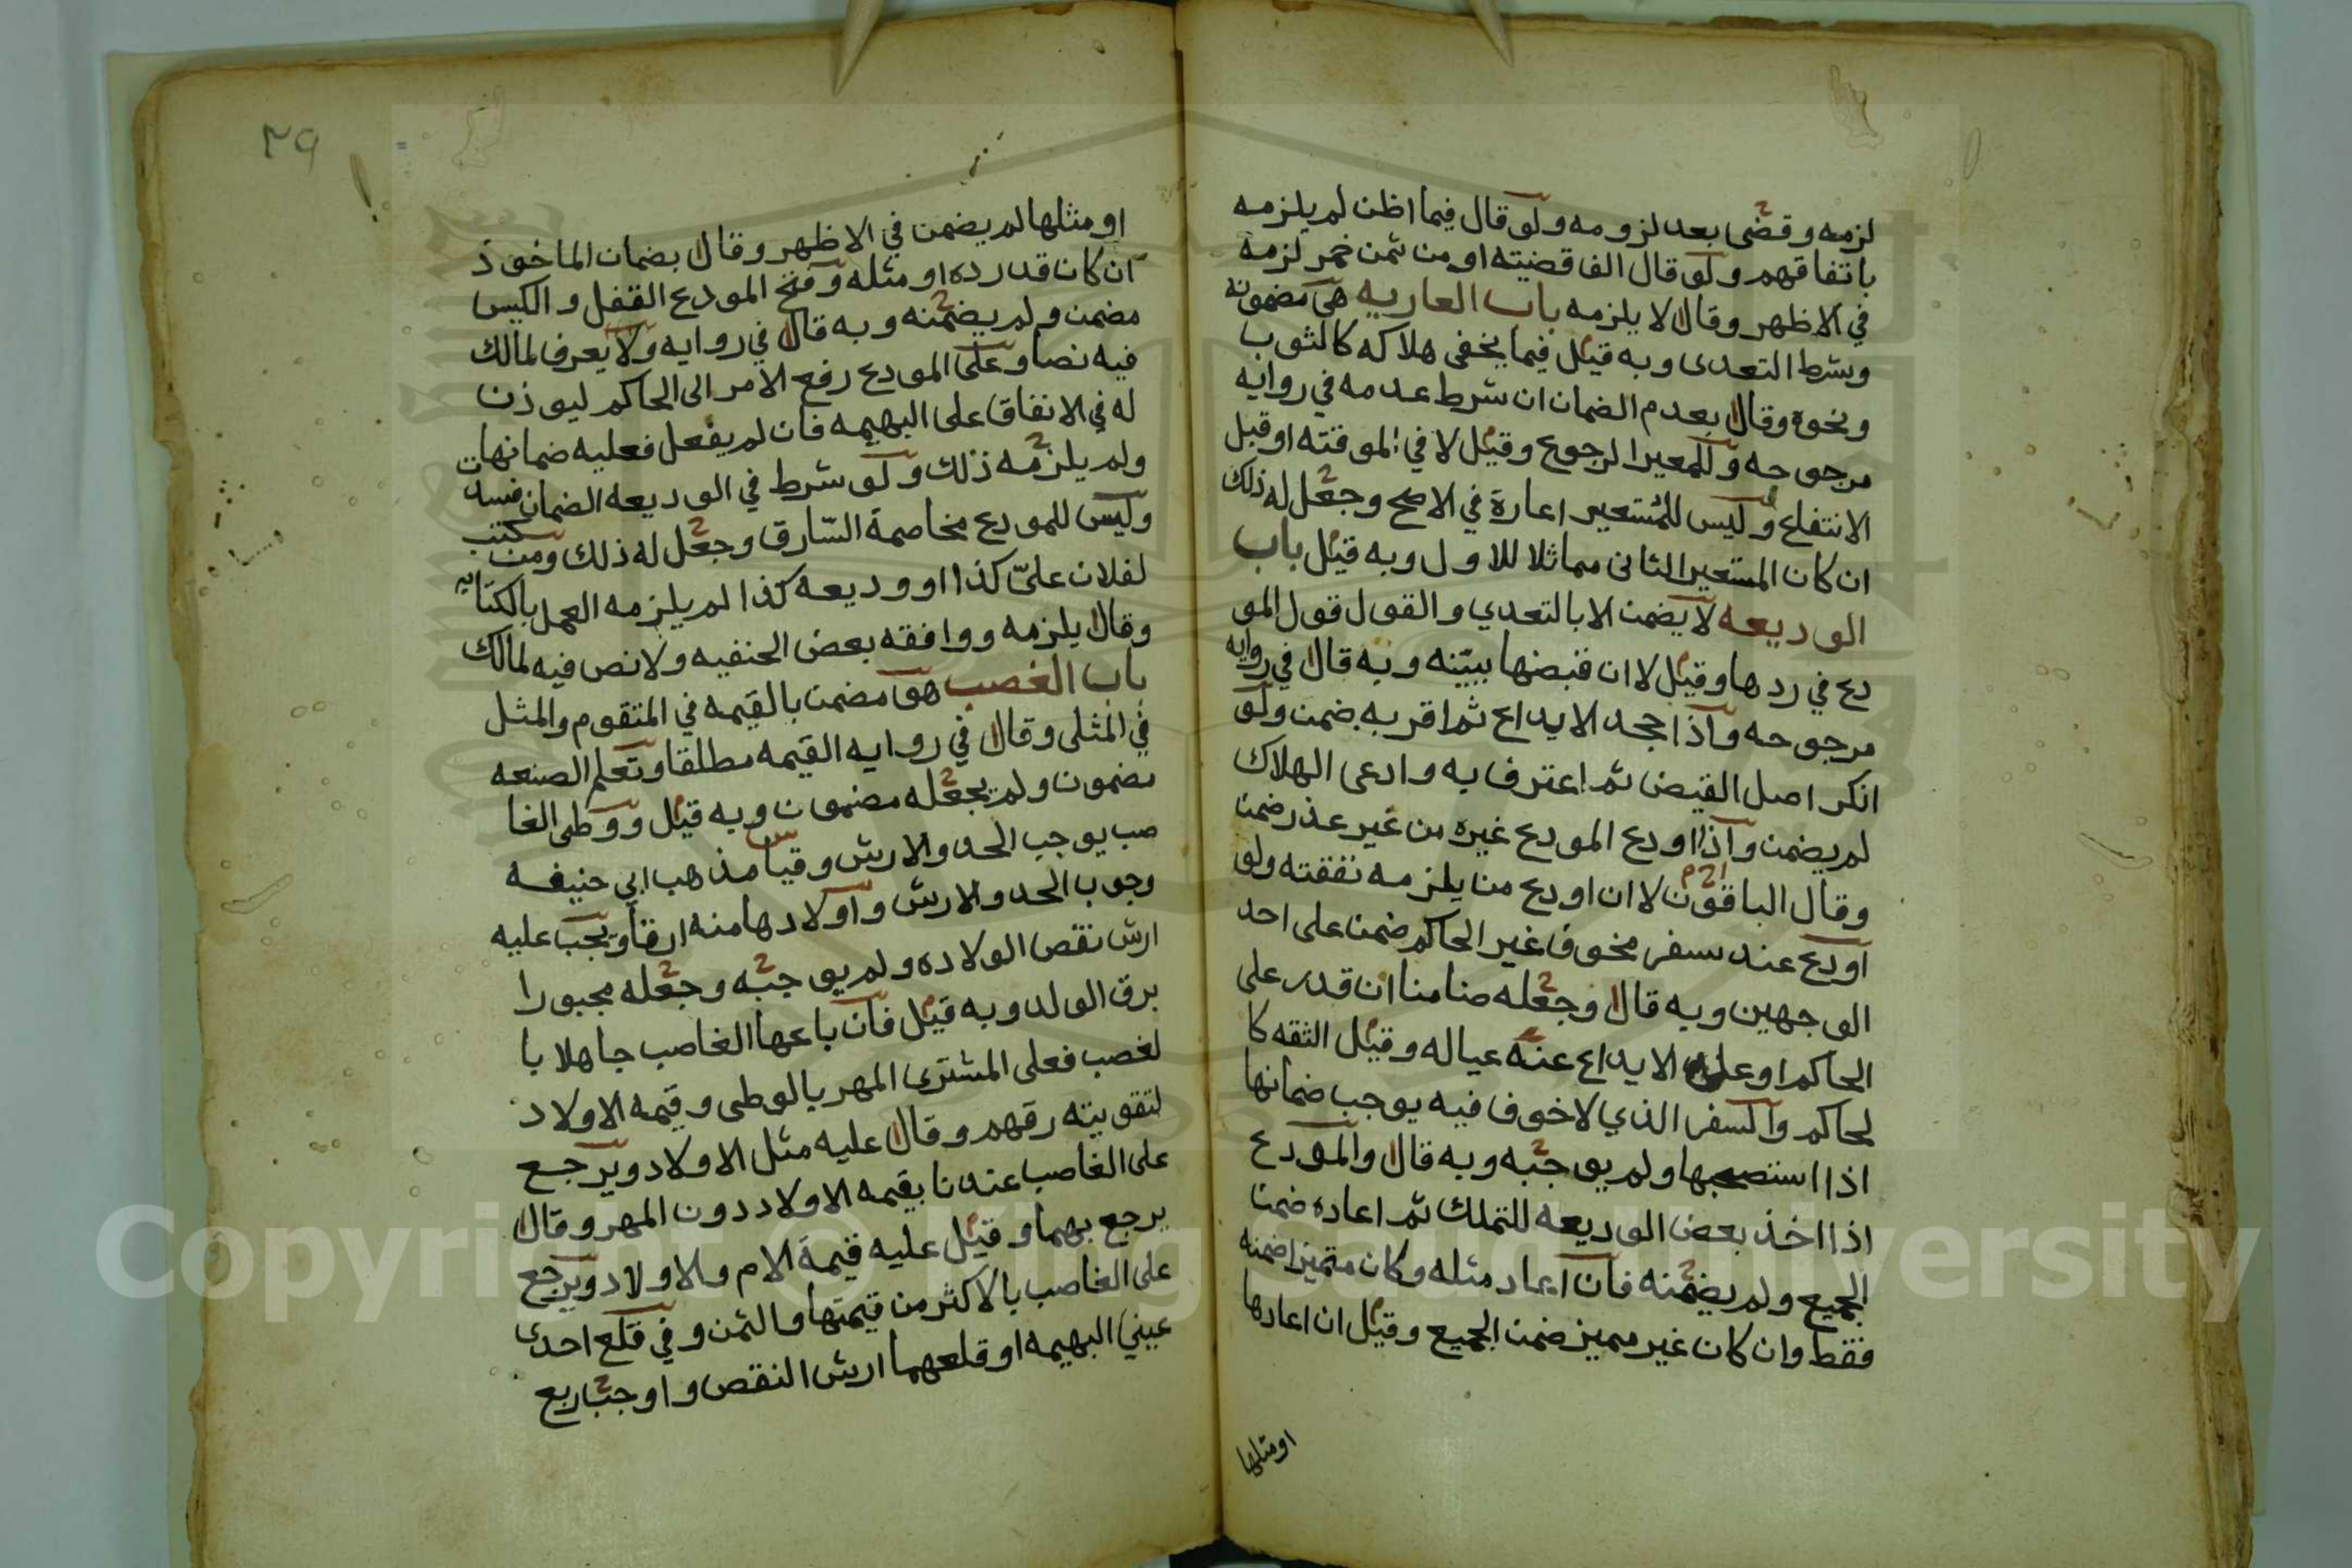 لزمه وقضى بعد لزومه ولو قال فيما اظن لم يلزمه
باتفاقهم ولو قال الفا قضيته او من ثمن خمر لزمه
في الاظهر وقال لا يلزمه باب العاريه هي مضمونه
وشرط التعدى وبه قيل فيما يخفى هلاكه كالثوب
ونحوه وقال بعدم الضمان ان شرط عدمه في روايه
مرجوحه وللمعير الرجوع وقيل لا في الموقته او قبل
الانتفاع وليس للمستعير اعارة في الاصح وجعل له ذلك
ان كان المستعير الثانى مماثلا للاول وبه قيل باب
الوديعه لا يضمن الا بالتعدي والقول قول المو
دع في ردها وقيل لا ان قبضها ببينه وبه قال في روايه
مرجوحه واذا جحد الايداع ثم اقر به ضمن ولو
انكر اصل القبض ثم اعترف به وادعى الهلاك
لم يضمن واذا اودع المودع غيره من غير عذر ضمن
وقال الباقون لا ان اودع من يلزمه نفقته ولو
اودع عند سفر مخوف غير الحاكم ضمن على احد
الوجهين وبه قال وجعله ضامنا ان قدر على
الحاكم او على الايداع عند عياله وقيل الثقه كا
لحاكم والسفر الذي لا خوف فيه يوجب ضمانها
اذا استصحبها ولم يوجبه وبه قال والمودع
اذا اخذ بعض الوديعه للتملك ثم اعاده ضمن
الجميع ولم يضمنه فان اعاد مثله وكان متميزا ضمنه
فقط وان كان غير مميز ضمن الجميع وقيل ان اعادها
او مثلها
٣٩
او مثلها لم يضمن في الاظهر وقال بضمان الماخوذ
ان كان قد رده او مثله وفتح المودع القفل والكيس
مضمن ولم يضمنه وبه قال في روايه ولا يعرف لمالك
فيه نصا وعلى المودع رفع الامر الى الحاكم ليوذن
له في الانفاق على البهيمه فان لم يفعل فعليه ضمانها
ولم يلزمه ذلك ولو شرط في الوديعه الضمان فسدت
وليس للمودع مخاصمة السّارق وجعل له ذلك ومن كتب
لفلان عليّ كذا او وديعه كذا لم يلزمه العمل بالكتابه
وقال يلزمه ووافقه بعض الحنفيه ولا نص فيه لمالك
باب الغصب هو مضمن بالقيمه في المتقوم والمثل
في المثلى وقال في روايه القيمه مطلقا وتعلم الصنعه
مضمون ولم يجعله مضمون وبه قيل ووطى الغا
صب يوجب الحد والارش وقياس مذهب ابي حنيفه
وجوب الحد والارش واولادها منه ارقا ويجب عليه
ارش نقص الولاده ولم يوجبه وجعله مجبورا
برق الولد وبه قيل فان باعها الغاصب جاهلا با
لغصب فعلى المشترى المهر بالوطى وقيمه الاولاد
لتفويته رقهم وقال عليه مثل الاولاد ويرجع
على الغاصب عندنا بقيمه الاولاد دون المهر وقال
يرجع بهما وقيل عليه قيمة الام والاولاد ويرجع
على الغاصب بالاكثر من قيمتها والثمن وفي قلع احدى
عيني البهيمه او قلعهما ارش النقص واوجب ربع
Copyright © King Saud University